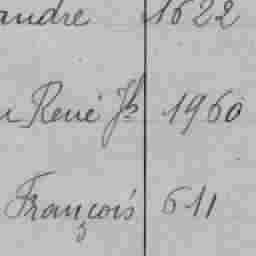 andre 1622
René Jh 1960
François 611